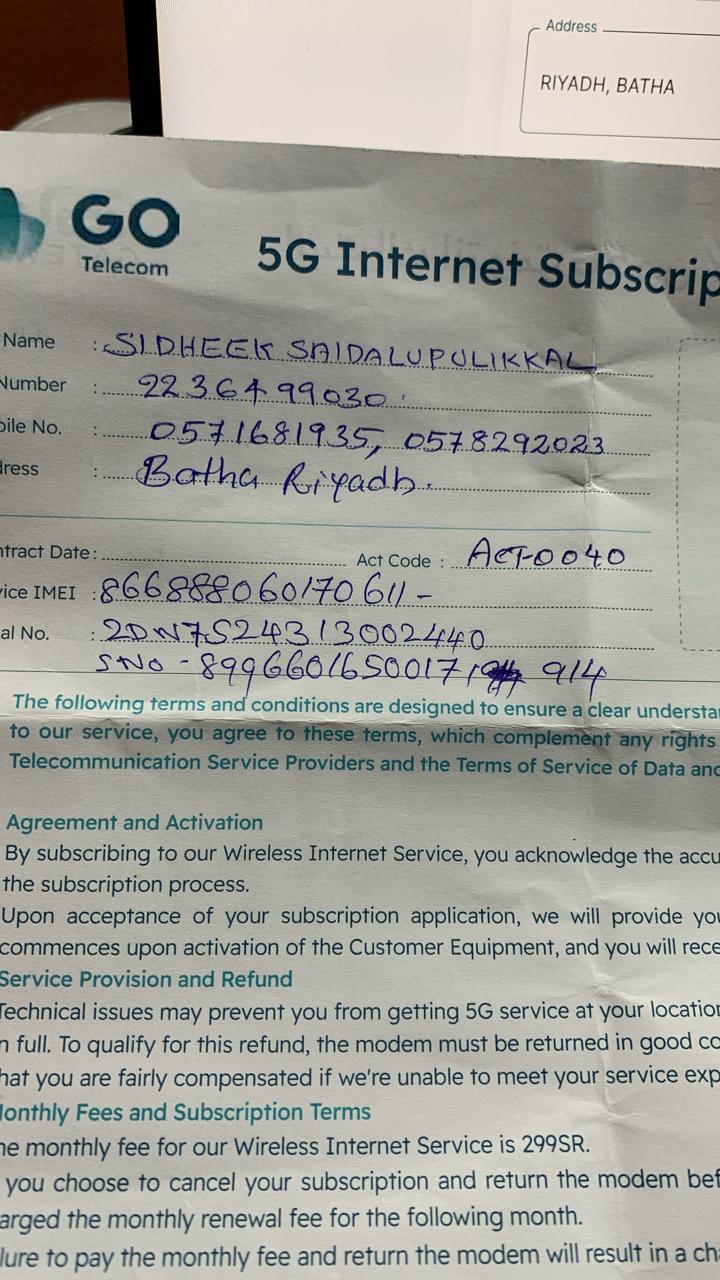 Address
RIYADH, BATHA
GO
Telecom
5G Internet Subscrip
Name : SIDHEEK SAIDALUPULIKKAL
Number : 2236499030
bile No. : 0571681935, 0578292023
dress : Batha Riyadh.
ntract Date: Act Code : ACT-0040
vice IMEI : 866888060170611-
al No. : 2DN7S24313002440
SNO - 899660165001719 914
The following terms and conditions are designed to ensure a clear understa
to our service, you agree to these terms, which complement any rights
Telecommunication Service Providers and the Terms of Service of Data and
Agreement and Activation
By subscribing to our Wireless Internet Service, you acknowledge the accu
the subscription process.
Upon acceptance of your subscription application, we will provide you
commences upon activation of the Customer Equipment, and you will rece
Service Provision and Refund
Technical issues may prevent you from getting 5G service at your location
n full. To qualify for this refund, the modem must be returned in good co
hat you are fairly compensated if we're unable to meet your service exp
Monthly Fees and Subscription Terms
he monthly fee for our Wireless Internet Service is 299SR.
you choose to cancel your subscription and return the modem bef
arged the monthly renewal fee for the following month.
lure to pay the monthly fee and return the modem will result in a ch